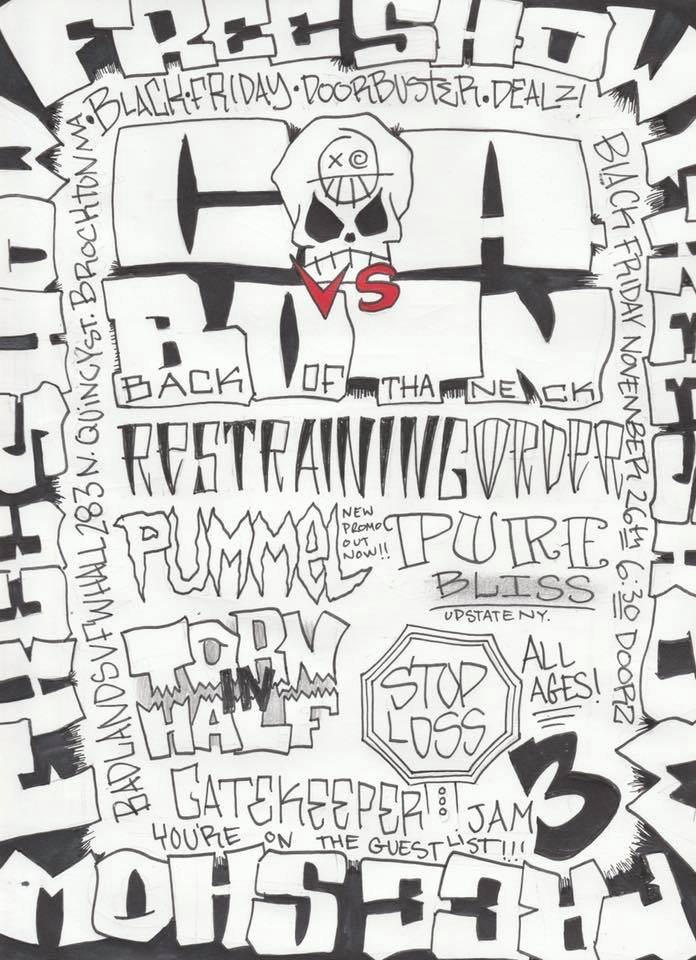 FREE SHOW
BLACK·FRIDAY·DOORBUSTER·DEALZ!
C A
VS
BOTN
BACK OF THA NECK
RESTRAINING ORDER
PUMMEL
NEW PROMO OUT NOW!!
PURE
BLISS
UPSTATE NY.
TORN
IN
HALF
STOP
LOSS
ALL
AGES!
GATEKEEPER JAM 3
YOU'RE ON THE GUEST LIST!!!
BADLANDS VFW HALL 283 N. QUINCY ST. BROCKTON MA.
BLACK FRIDAY NOVEMBER 26th 6:30 DOORZ
FREE SHOW